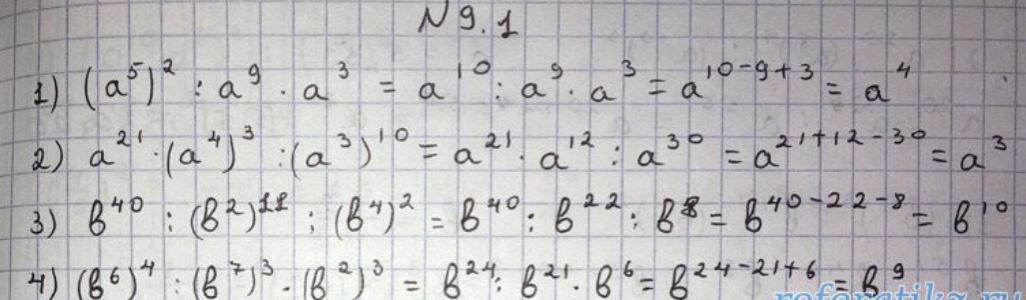 № 9.1
1) (a⁵)² : a⁹ · a³ = a¹⁰ : a⁹ · a³ = a¹⁰⁻⁹⁺³ = a⁴
2) a²¹ · (a⁴)³ : (a³)¹⁰ = a²¹ · a¹² : a³⁰ = a²¹⁺¹²⁻³⁰ = a³
3) в⁴⁰ : (в²)¹¹ : (в⁴)² = в⁴⁰ : в²² : в⁸ = в⁴⁰⁻²²⁻⁸ = в¹⁰
4) (в⁶)⁴ : (в⁷)³ · (в²)³ = в²⁴ : в²¹ · в⁶ = в²⁴⁻²¹⁺⁶ = в⁹